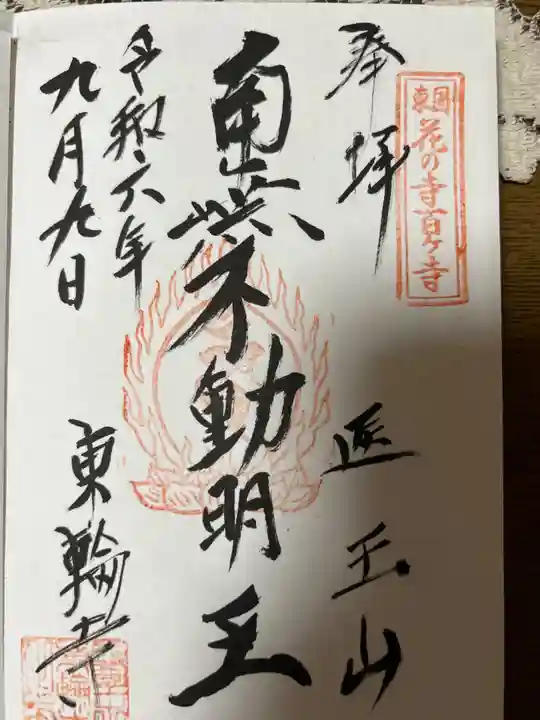 東国花の寺百ヶ寺
奉拝
医王山
南無不動明王
令和六年
九月九日
東輪寺